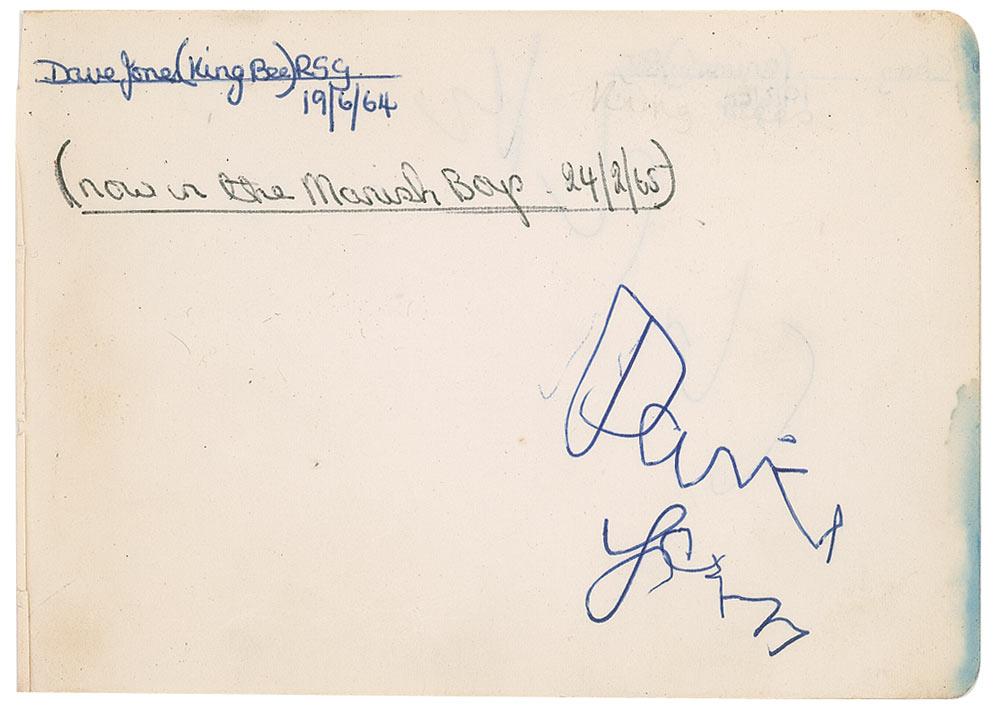 Dave Jones (King Bee) RSG.
19/6/64
(now in the Manish Boys. 24/2/65)
David
Jones